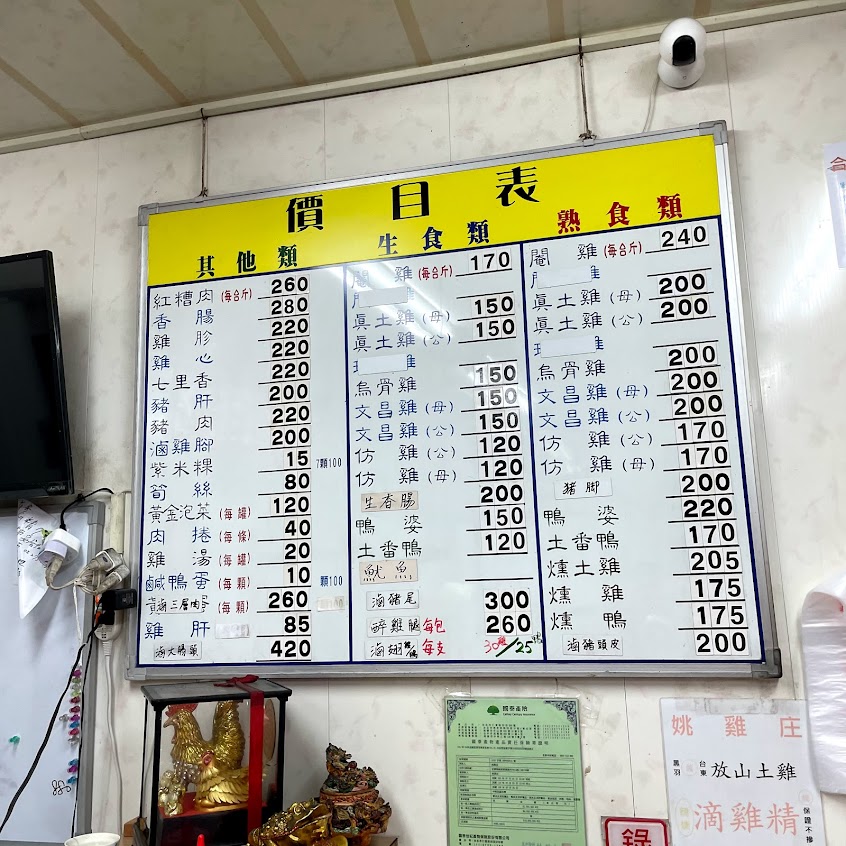 價目表
其他類
紅糟肉(每台斤) 260
香腸 280
雞胗 220
雞心 220
七里香 220
豬肝 200
豬肉 220
滷雞腳 200
紫米粿 15 7顆100
筍絲 80
黃金泡菜(每罐) 120
肉捲(每條) 40
雞湯(每罐) 20
鹹鴨蛋(每顆) 10 顆100
滷三層肉(每顆) 260
雞肝 85
滷大腸頭 420
生食類
閹雞(每台斤) 170
眞土雞(母) 150
眞土雞(公) 150
雞
烏骨雞 150
文昌雞(母) 150
文昌雞(公) 150
仿雞(公) 120
仿雞(母) 120
生香腸 200
鴨婆 150
土番鴨 120
魷魚
滷豬尾 300
醉雞腿每包 260
滷翅每支 30雞/25鴨
熟食類
閹雞(每台斤) 240
雞
眞土雞(母) 200
眞土雞(公) 200
雞
烏骨雞 200
文昌雞(母) 200
文昌雞(公) 200
仿雞(公) 170
仿雞(母) 170
豬腳 200
鴨婆 220
土番鴨 170
燻土雞 205
燻雞 175
燻鴨 175
滷豬頭皮 200
國泰產險
錄
姚雞庄
鳳羽
台東
放山土雞
滴雞精
保證不摻